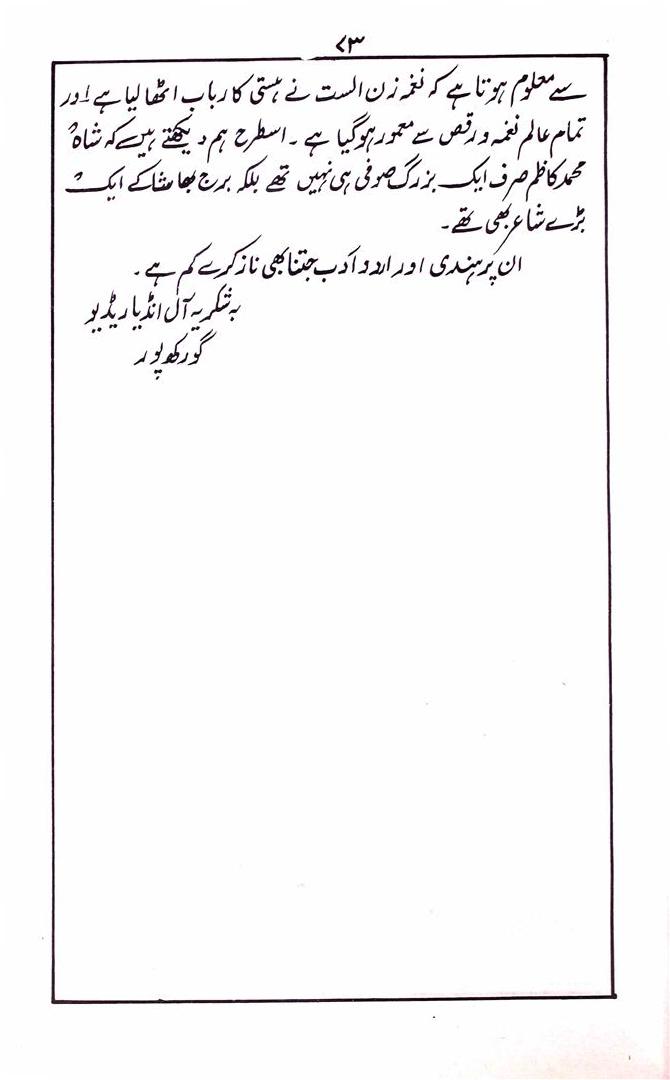 ۷۳
سے معلوم ہوتا ہے کہ نغمہ زن الست نے ہستی کا رباب اٹھا لیا ہے اور
تمام عالم نغمہ و رقص سے معمور ہوگیا ہے ۔ اسطرح ہم دیکھتے ہیں کہ شاہ
محمد کاظم صرف ایک بزرگ صوفی ہی نہیں تھے بلکہ برج بھاشا کے ایک
بڑے شاعر بھی تھے ۔
ان پر ہندی اور اردو ادب جتنا بھی ناز کرے کم ہے ۔
بہ شکریہ آل انڈیا ریڈیو
گورکھپور